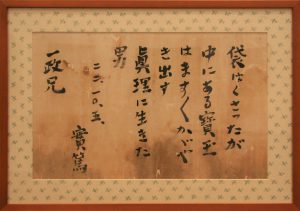 袋はくさったが
中にある寶玉
はますくかゞや
き出す
眞理に生きた
男
二六一〇、五、
實篤
一政兄